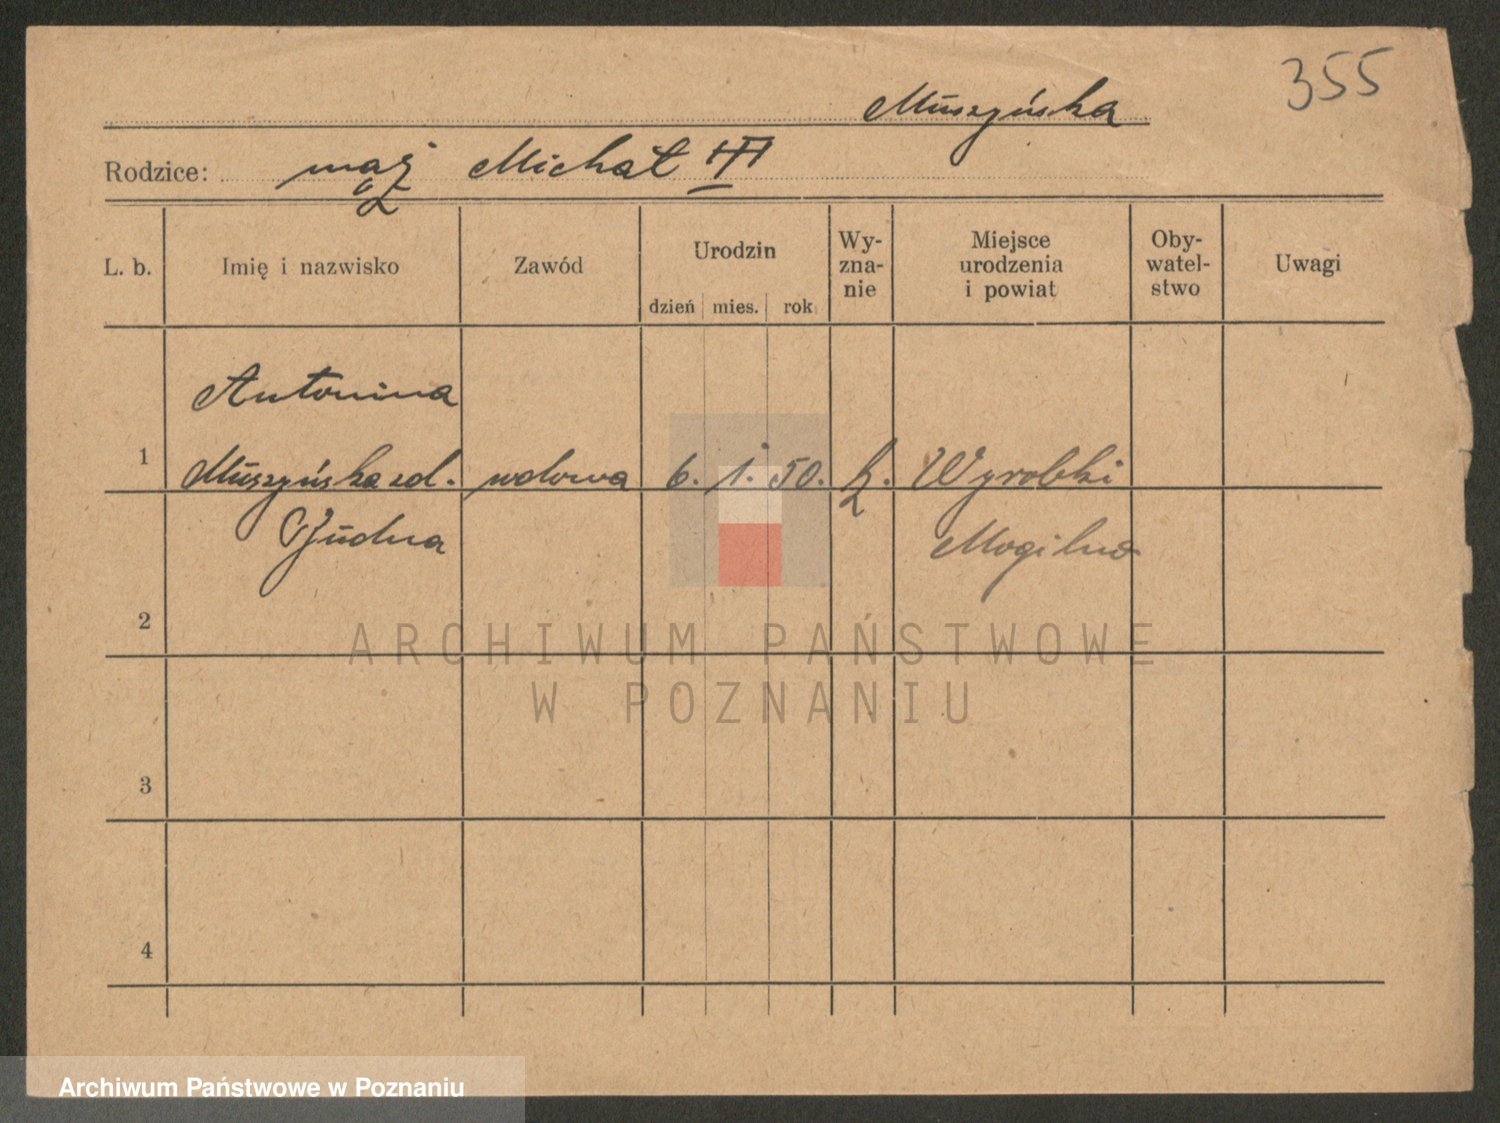 355
Muszyńska
Rodzice: mąż Michał III
L. b. Imię i nazwisko Zawód Urodzin dzień mies. rok Wy-zna-nie Miejsce urodzenia i powiat Oby-watel-stwo Uwagi
Antonina
1 Muszyńska zd. wdowa 6. 1. 50. k. Wyrobki
Żudna
Mogilno
2
3
4
ARCHIWUM PAŃSTWOWE
W POZNANIU
Archiwum Państwowe w Poznaniu